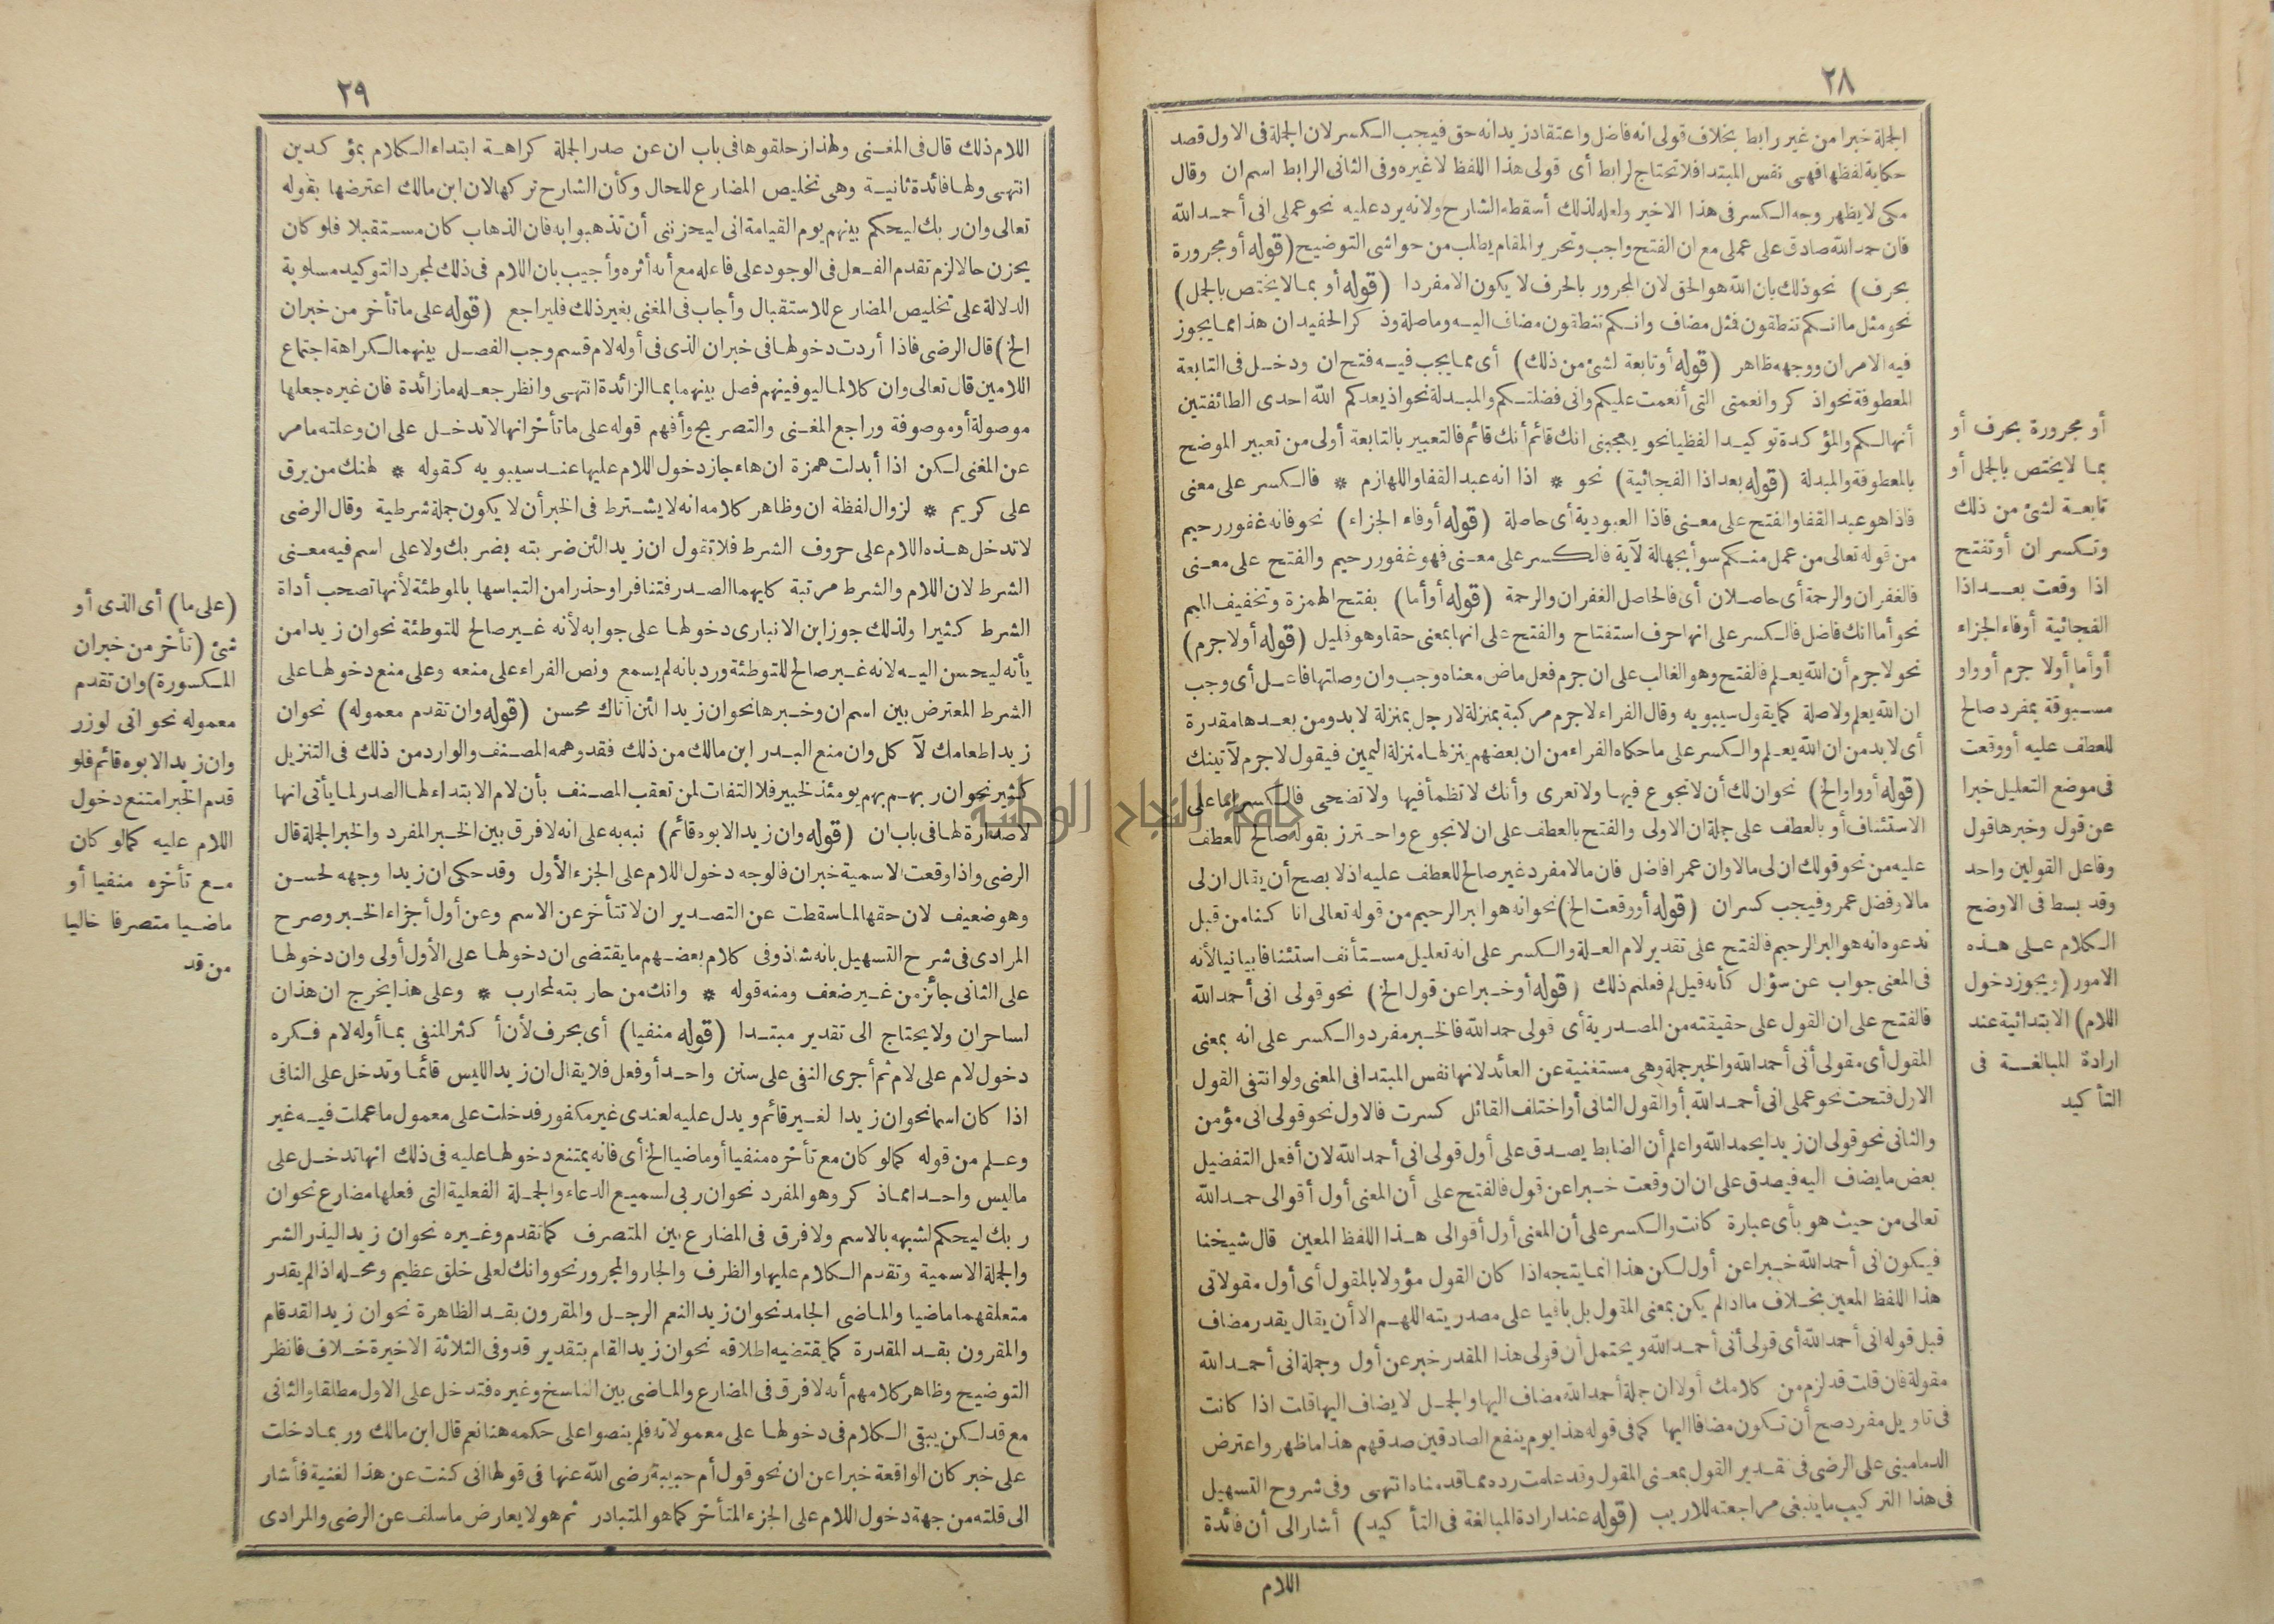 ٢٨
الجملة خبرا من غير رابط بخلاف قولى انه فاضل واعتقاد زيد انه حق فيجب الكسر لان الجملة فى الاول قصد
حكاية لفظها فهى نفس المبتدا فلا تحتاج لرابط أى قولى هذا اللفظ لا غيره وفى الثانى الرابط اسم ان وقال
مكى لا يظهر وجه الكسر فى هذا الاخير ولعله لذلك أسقطه الشارح ولانه يرد عليه نحو عملى انى أحمد الله
فان حمد الله صادق على عملى مع ان الفتح واجب وتحرير المقام يطلب من حواشى التوضيح (قوله أو مجرورة
بحرف) نحو ذلك بان الله هو الحق لان المجرور بالحرف لا يكون الا مفردا (قوله أو بما لا يختص بالجمل)
نحو مثل ما انكم تنطقون فمثل مضاف وانكم تنطقون مضاف اليه وما صلة وذكر الحفيد ان هذا مما يجوز
فيه الامران ووجهه ظاهر (قوله أو تابعة لشئ من ذلك) أى مما يجب فيه فتح ان ودخل فى التابعة
المعطوفة نحو اذكروا نعمتى التى أنعمت عليكم وانى فضلتكم والمبدلة نحو اذ يعدكم الله احدى الطائفتين
أنها لكم والمؤكدة توكيدا لفظيا نحو يعجبنى انك قائم أنك قائم فالتعبير بالتابعة أولى من تعبير الموضح
بالمعطوفة والمبدلة (قوله بعد اذا الفجائية) نحو * اذا انه عبد القفا واللهازم * فالكسر على معنى
فاذا هو عبد القفا والفتح على معنى فاذا العبودية أى حاصلة (قوله أو فاء الجزاء) نحو فانه غفور رحيم
من قوله تعالى من عمل منكم سوأ بجهالة لآية فالكسر على معنى فهو غفور رحيم والفتح على معنى
فالغفران والرحمة أى حاصلان أى فالحاصل الغفران والرحمة (قوله أو أما) بفتح الهمزة وتخفيف الميم
نحو أما انك فاضل فالكسر على انها حرف استفتاح والفتح على انها بمعنى حقا وهو قليل (قوله أو لا جرم)
نحو لا جرم أن الله يعلم فالفتح وهو الغالب على ان جرم فعل ماض معناه وجب وان وصلتها فاعل أى وجب
ان الله يعلم ولا صلة كما يقول سيبويه وقال الفراء لا جرم مركبة بمنزلة لا رجل بمنزلة لا بد ومن بعدها مقدرة
أى لا بد من ان الله يعلم والكسر على ما حكاه الفراء من ان بعضهم ينزلها منزلة اليمين فيقول لا جرم لآتينك
(قوله أو واو الخ) نحو ان لك أن لا تجوع فيها ولا تعرى وأنك لا تظمأ فيها ولا تضحى فالكسر اما على
الاستئناف أو بالعطف على جملة ان الاولى والفتح بالعطف على ان لا تجوع واحترز بقوله صالح للعطف
عليه من نحو قولك ان لى مالا وان عمرا فاضل فان مالا مفرد غير صالح للعطف عليه اذ لا يصح أن يقال ان لى
مالا وفضل عمرو فيجب كسر ان (قوله أو وقعت الخ) نحو انه هو البر الرحيم من قوله تعالى انا كنا من قبل
ندعوه انه هو البر الرحيم فالفتح على تقدير لام العلة والكسر على انه تعليل مستأنف استئنافا بيانيا لأنه
فى المعنى جواب عن سؤال كأنه قيل لم فعلتم ذلك (قوله أو خبرا عن قول الخ) نحو قولى انى أحمد الله
فالفتح على ان القول على حقيقته من المصدرية أى قولى حمد الله فالخبر مفرد والكسر على انه بمعنى
المقول أى مقولى أنى أحمد الله والخبر جملة وهى مستغنية عن العائد لانها نفس المبتدا فى المعنى ولو انتفى القول
الاول فتحت نحو عملى انى أحمد الله أو القول الثانى أو اختلف القائل كسرت فالاول نحو قولى انى مؤمن
والثانى نحو قولى ان زيدا يحمد الله واعلم أن الضابط يصدق على أول قولى انى أحمد الله لان أفعل التفضيل
بعض ما يضاف اليه فيصدق على ان ان وقعت خبرا عن قول فالفتح على أن المعنى أول أقوالى حمد الله
تعالى من حيث هو بأى عبارة كانت والكسر على أن المعنى أول أقوالى هذا اللفظ المعين قال شيخنا
فيكون انى أحمد الله خبرا عن أول لكن هذا انما يتجه اذا كان القول مؤولا بالمقول أى أول مقولاتى
هذا اللفظ المعين بخلاف ما اذا لم يكن بمعنى المقول بل باقيا على مصدريته اللهم الا أن يقال يقدر مضاف
قبل قوله انى أحمد الله أى قولى أنى أحمد الله ويحتمل أن قولى هذا المقدر خبر عن أول وجملة انى أحمد الله
مقولة فان قلت قد لزم من كلامك أولا ان جملة أحمد الله مضاف اليها والجمل لا يضاف اليها قلت اذا كانت
فى تاويل مفرد صح أن تكون مضافا اليها كما فى قوله هذا يوم ينفع الصادقين صدقهم هذا ما ظهر واعترض
الدمامينى على الرضى فى تقدير القول بمعنى المقول وقد علمت رده مما قدمناه انتهى وفى شروح التسهيل
فى هذا التركيب ما ينبغى مراجعته للاريب (قوله عند ارادة المبالغة فى التأكيد) أشار الى أن فائدة
اللام
أو مجرورة بحرف أو
بما لا يختص بالجمل أو
تابعة لشئ من ذلك
وتكسر ان أو تفتح
اذا وقعت بعد اذا
الفجائية أو فاء الجزاء
أو أما أو لا جرم أو واو
مسبوقة بمفرد صالح
للعطف عليه أو وقعت
فى موضع التعليل خبرا
عن قول وخبرها قول
وفاعل القولين واحد
وقد بسط فى الاوضح
الكلام على هذه
الامور (ويجوز دخول
اللام) الابتدائية عند
ارادة المبالغة فى
التأكيد
٢٩
اللام ذلك قال فى المغنى ولهذا زحلقوها فى باب ان عن صدر الجملة كراهة ابتداء الكلام بمؤكدين
انتهى ولها فائدة ثانية وهى تخليص المضارع للحال وكأن الشارح تركها لان ابن مالك اعترضها بقوله
تعالى وان ربك ليحكم بينهم يوم القيامة انى ليحزننى أن تذهبوا به فان الذهاب كان مستقبلا فلو كان
يحزن حالا لزم تقدم الفعل فى الوجود على فاعله مع أنه أثره وأجيب بان اللام فى ذلك لمجرد التوكيد مسلوبة
الدلالة على تخليص المضارع للاستقبال وأجاب فى المغنى بغير ذلك فليراجع (قوله على ما تأخر من خبر ان
الخ) قال الرضى فاذا أردت دخولها فى خبر ان الذى فى أوله لام قسم وجب الفصل بينهما لكراهة اجتماع
اللامين قال تعالى وان كلا لما ليوفينهم فصل بينهما بما الزائدة انتهى وانظر جعله ما زائدة فان غيره جعلها
موصولة أو موصوفة وراجع المغنى والتصريح وأفهم قوله على ما تأخر انها لا تدخل على ان وعلته ما مر
عن المغنى لكن اذا أبدلت همزة ان هاء جاز دخول اللام عليها عند سيبويه كقوله * لهنك من برق
على كريم * لزوال لفظة ان وظاهر كلامه انه لا يشترط فى الخبر أن لا يكون جملة شرطية وقال الرضى
لا تدخل هذه اللام على حروف الشرط فلا تقول ان زيدا لئن ضربته يضربك ولا على اسم فيه معنى
الشرط لان اللام والشرط مرتبة كليهما الصدر فتنافرا وحذرا من التباسها بالموطئة لأنها تصحب أداة
الشرط كثيرا ولذلك جوز ابن الانبارى دخولها على جوابه لأنه غير صالح للتوطئة نحو ان زيدا من
يأته ليحسن اليه لانه غير صالح للتوطئة ورد بانه لم يسمع ونص الفراء على منعه وعلى منع دخولها على
الشرط المعترض بين اسم ان وخبرها نحو ان زيدا لئن أتاك محسن (قوله وان تقدم معموله) نحو ان
زيدا طعامك لآكل وان منع البدر ابن مالك من ذلك فقد وهمه المصنف والوارد من ذلك فى التنزيل
كثير نحو ان ربهم بهم يومئذ لخبير فلا التفات لمن تعقب المصنف بأن لام الابتداء لها الصدر لما يأتى انها
لا صدارة لها فى باب ان (قوله وان زيدا لابوه قائم) نبه به على انه لا فرق بين الخبر المفرد والخبر الجملة قال
الرضى واذا وقعت الاسمية خبر ان فالوجه دخول اللام على الجزء الأول وقد حكى ان زيدا وجهه لحسن
وهو ضعيف لان حقها لما سقطت عن التصدير ان لا تتأخر عن الاسم وعن أول أجزاء الخبر وصرح
المرادى فى شرح التسهيل بانه شاذ وفى كلام بعضهم ما يقتضى ان دخولها على الأول أولى وان دخولها
على الثانى جائز من غير ضعف ومنه قوله * وانك من حاربته لمحارب * وعلى هذا يخرج ان هذان
لساحران ولا يحتاج الى تقدير مبتدا (قوله منفيا) أى بحرف لأن أكثر المنفى بما أوله لام فكره
دخول لام على لام ثم أجرى النفى على سنن واحد أو فعل فلا يقال ان زيدا لليس قائما وتدخل على النافى
اذا كان اسما نحو ان زيدا لغير قائم ويدل عليه لعندى غير مكفور فدخلت على معمول ما عملت فيه غير
وعلم من قوله كما لو كان مع تأخره منفيا أو ماضيا الخ أى فانه يمتنع دخولها عليه فى ذلك انها تدخل على
ما ليس واحدا مما ذكر وهو المفرد نحو ان ربى لسميع الدعاء والجملة الفعلية التى فعلها مضارع نحو ان
ربك ليحكم لشبهه بالاسم ولا فرق فى المضارع بين المتصرف كما تقدم وغيره نحو ان زيدا ليذر الشر
والجملة الاسمية وتقدم الكلام عليها والظرف والجار والمجرور نحو وانك لعلى خلق عظيم ومحله اذا لم يقدر
متعلقهما ماضيا والماضى الجامد نحو ان زيدا لنعم الرجل والمقرون بقد الظاهرة نحو ان زيدا لقد قام
والمقرون بقد المقدرة كما يقتضيه اطلاقه نحو ان زيدا لقام بتقدير قد وفى الثلاثة الاخيرة خلاف فانظر
التوضيح وظاهر كلامهم أنه لا فرق فى المضارع والماضى بين الناسخ وغيره فتدخل على الاول مطلقا والثانى
مع قد لكن يبقى الكلام فى دخولها على معمولاته فلم ينصوا على حكمه هنا نعم قال ابن مالك وربما دخلت
على خبر كان الواقعة خبرا عن ان نحو قول أم حبيبة رضى الله عنها فى قولها انى كنت عن هذا لغنية فأشار
الى قلته من جهة دخول اللام على الجزء المتأخر كما هو المتبادر ثم هو لا يعارض ما سلف عن الرضى والمرادى
(على ما) أى الذى أو
شئ (تأخر من خبر ان
المكسورة) وان تقدم
معموله نحو انى لوزر
وان زيدا لابوه قائم فلو
قدم الخبر امتنع دخول
اللام عليه كما لو كان
مع تأخره منفيا أو
ماضيا متصرفا خاليا
من قد
جامعة النجاح الوطنية